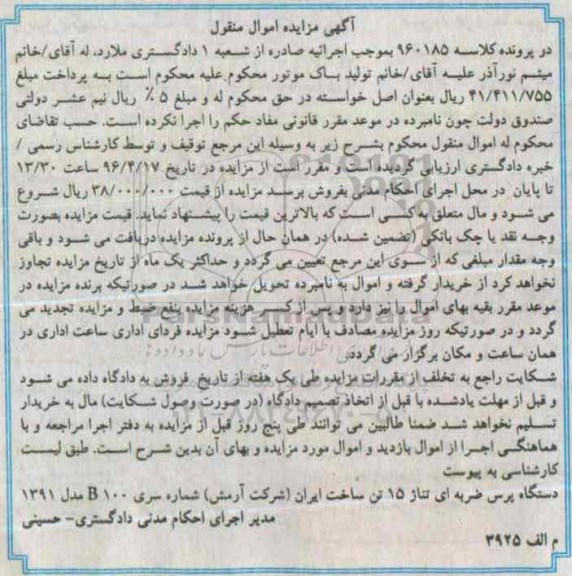 آگهی مزایده اموال منقول
در پرونده کلاسه ۹۶۰۱۸۵ بموجب اجرائیه صادره از شعبه ۱ دادگستری ملارد، له آقای/خانم
میثم نورآذر علیه آقای/خانم تولید باک موتور محکوم علیه محکوم است به پرداخت مبلغ
۴۱/۴۱۱/۷۵۵ ریال بعنوان اصل خواسته در حق محکوم له و مبلغ ۵٪ ریال نیم عشر دولتی
صندوق دولت چون نامبرده در موعد مقرر قانونی مفاد حکم را اجرا نکرده است. حسب تقاضای
محکوم له اموال منقول محکوم بشرح زیر به وسیله این مرجع توقیف و توسط کارشناس رسمی /
خبره دادگستری ارزیابی گردیده است و مقرر است از مزایده در تاریخ ۹۶/۴/۱۷ ساعت ۱۳/۳۰
تا پایان در محل اجرای احکام مدنی بفروش برسد مزایده از قیمت ۳۸/۰۰۰/۰۰۰ ریال شروع
می شود و مال متعلق به کسی است که بالاترین قیمت را پیشنهاد نماید. قیمت مزایده بصورت
وجه نقد یا چک بانکی (تضمین شده) در همان حال از پرونده مزایده دریافت می شود و باقی
وجه مقدار مبلغی که از سوی این مرجع تعیین می گردد و حداکثر یک ماه از تاریخ مزایده تجاوز
نخواهد کرد از خریدار گرفته و اموال به نامبرده تحویل خواهد شد در صورتیکه برنده مزایده در
موعد مقرر بقیه بهای اموال را نیز دارد پس از کسر هزینه مزایده بنفع ضبط و مزایده تجدید می
گردد و در صورتیکه روز مزایده مصادف با ایام تعطیل شود مزایده فردای اداری ساعت اداری در
همان ساعت و مکان برگزار می گردد.
شکایت راجع به تخلف از مقررات مزایده طی یک هفته از تاریخ فروش به دادگاه داده می شود
و قبل از مهلت یادشده با قبل از اتخاذ تصمیم دادگاه (در صورت وصول شکایت) مال به خریدار
تسلیم نخواهد شد ضمنا طالبین می توانند طی پنج روز قبل از مزایده به دفتر اجرا مراجعه و با
هماهنگی اجرا از اموال بازدید و اموال مورد مزایده و بهای آن بدین شرح است. طبق لیست
کارشناسی به پیوست
دستگاه پرس ضربه ای تناژ ۱۵ تن ساخت ایران (شرکت آرمش) شماره سری B ۱۰۰ مدل ۱۳۹۱
مدیر اجرای احکام مدنی دادگستری- حسینی
م الف ۳۹۲۵